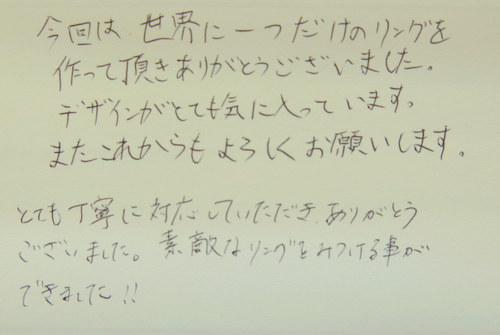 今回は 世界に一つだけのリングを
作って頂きありがとうございました。
デザインがとても気に入っています。
またこれからも よろしく お願いします。
とても丁寧に対応していただき ありがとう
ございました。素敵なリングをみつける事が
できました!!